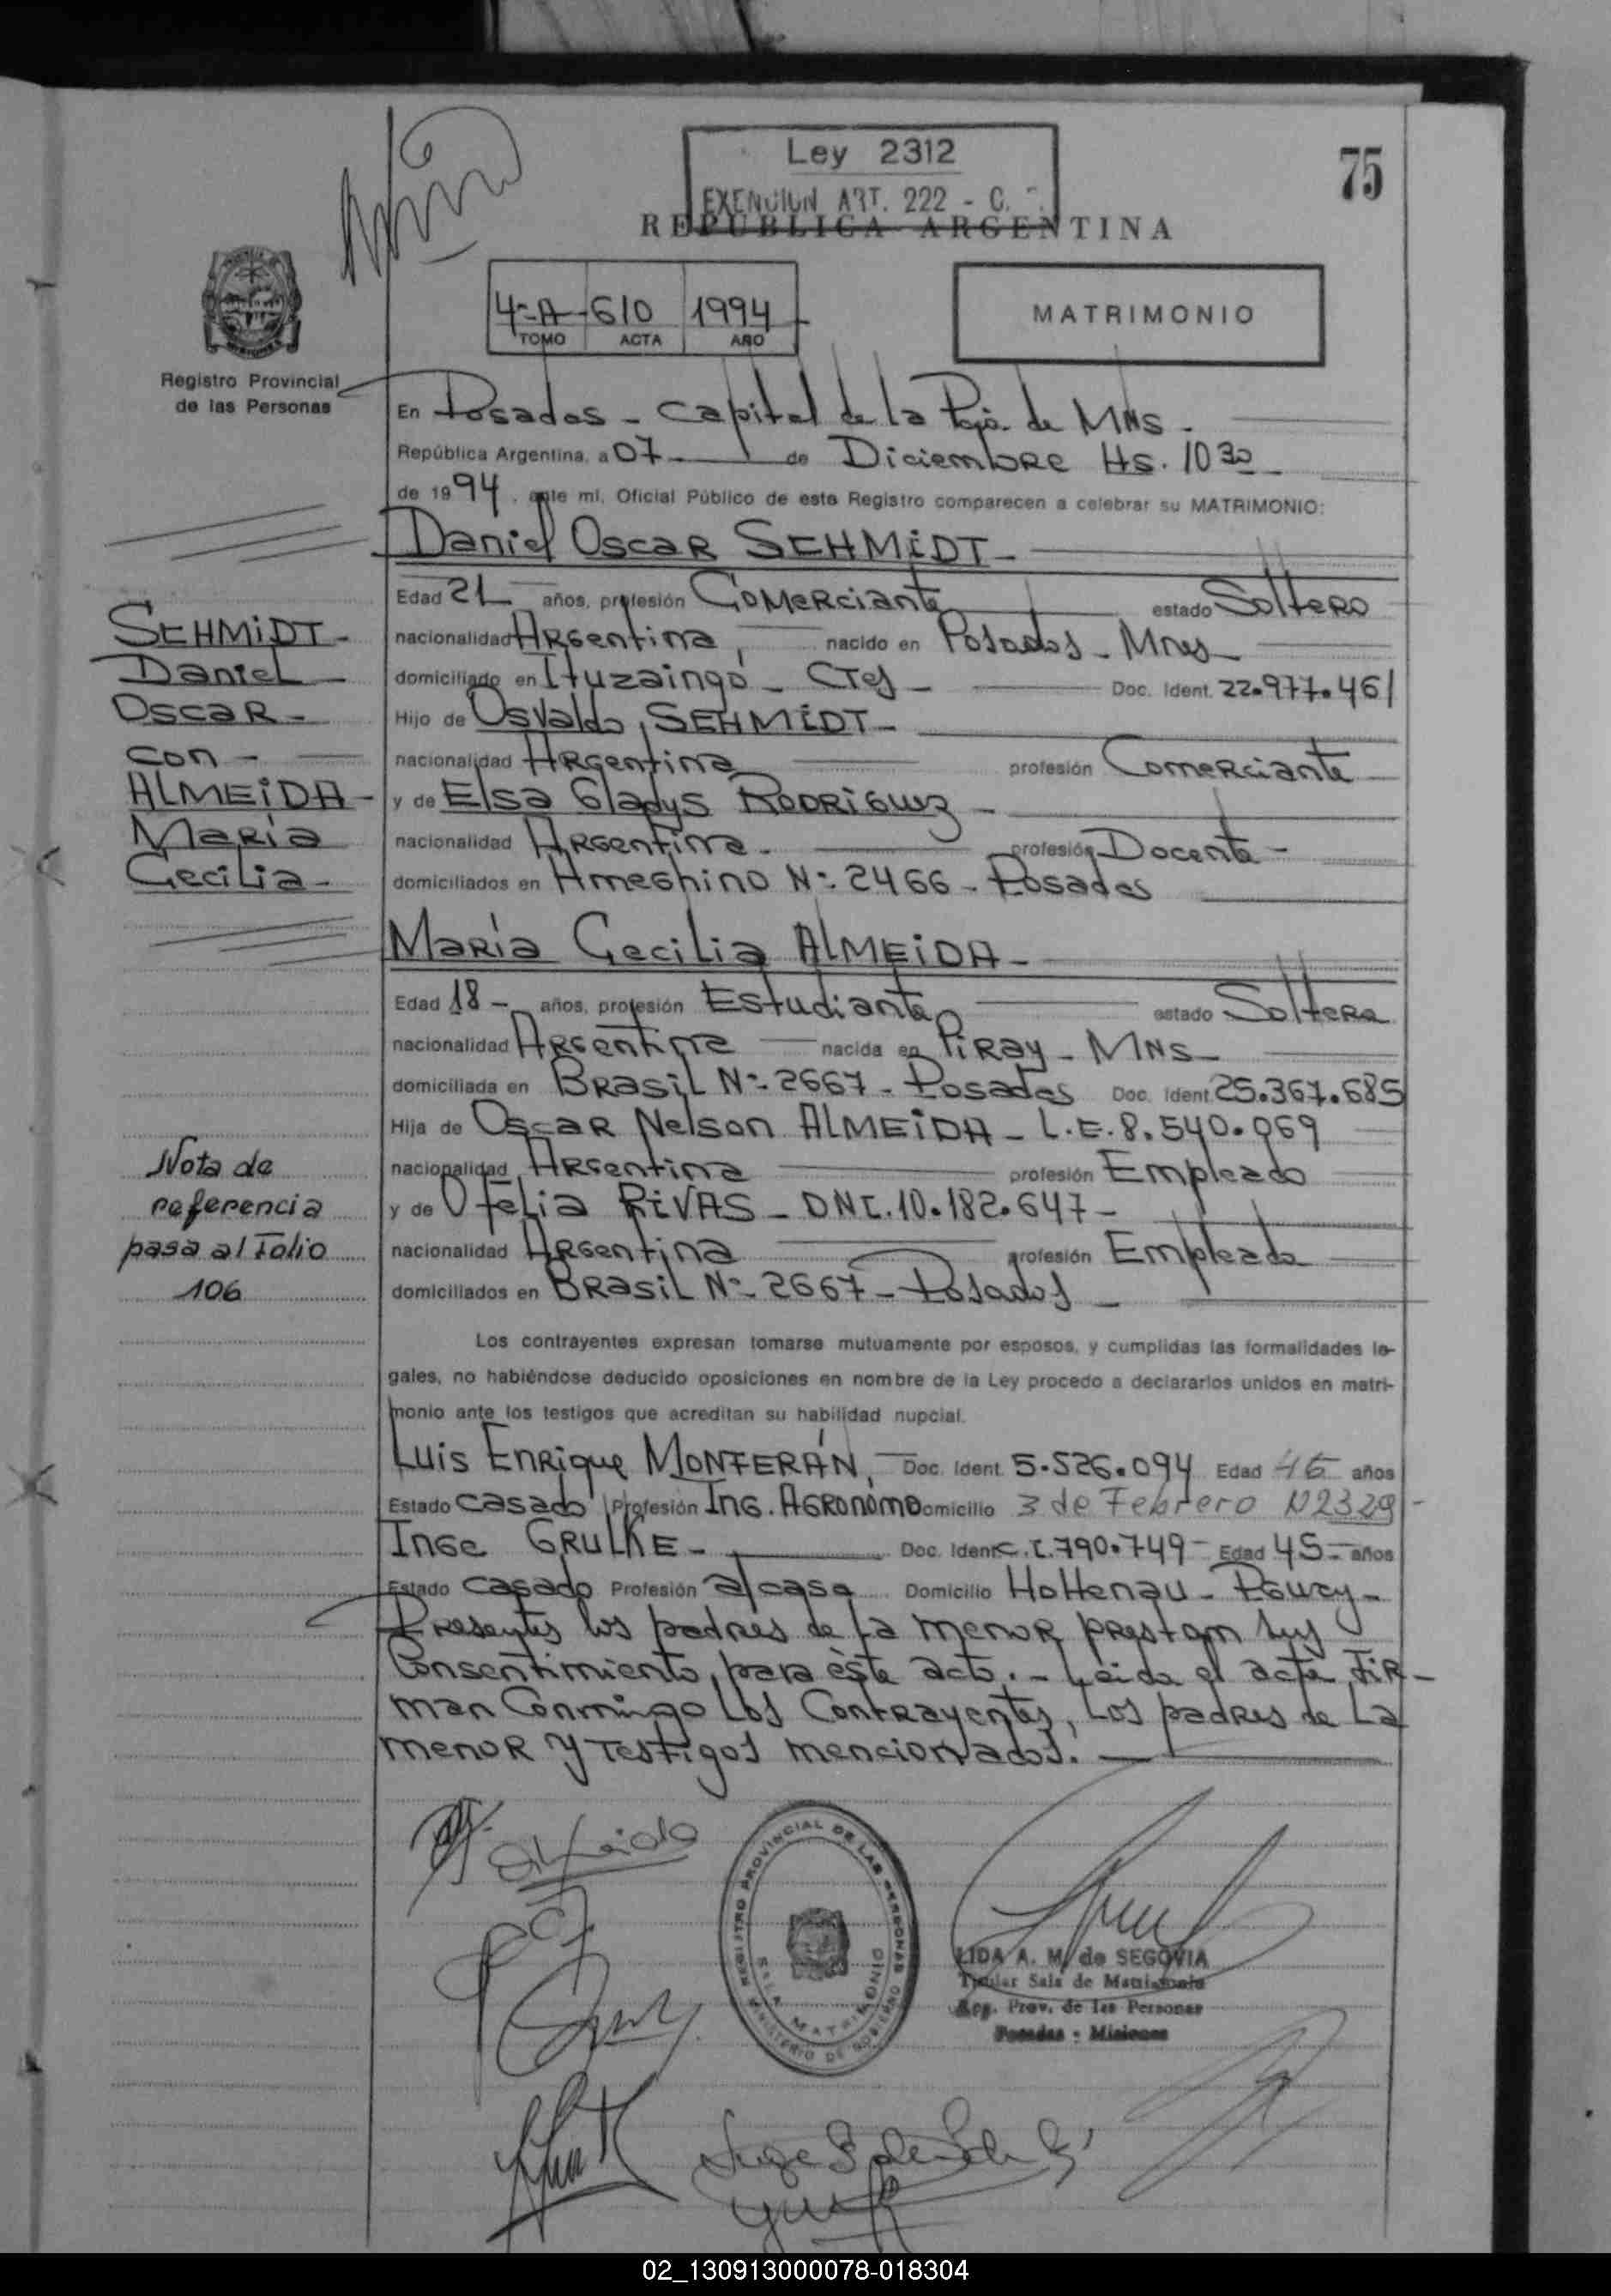 Ley 2312
75
EXENCION ART. 222 - C.
REPUBLICA ARGENTINA
4-A 610 1994
TOMO ACTA AÑO
MATRIMONIO
Registro Provincial
de las Personas
En Posadas - Capital de la Pcia. de MNS.
República Argentina, a 07 de Diciembre Hs. 10 30
de 1994, ante mi, Oficial Público de este Registro comparecen a celebrar su MATRIMONIO:
Daniel Oscar SEHMIDT
Edad 21 años, profesión Comerciante estado Soltero
nacionalidad Argentina, nacido en Posadas - Mnes
domiciliado en Ituzaingó - Ctes - Doc. Ident. 22.977.461
Hijo de Osvaldo SEHMIDT
nacionalidad Argentina profesión Comerciante
y de Elsa Gladys RODRIGUEZ
nacionalidad Argentina profesión Docente
domiciliados en Ameghino Nº 2466 - Posadas
SEHMIDT-
Daniel
Oscar-
con-
ALMEIDA-
María
Cecilia-
María Cecilia ALMEIDA-
Edad 18 - años, profesión Estudiante estado Soltera
nacionalidad Argentina nacida en Piray - MNS
domiciliada en Brasil Nº 2667 - Posadas Doc. Ident. 25.367.685
Hija de Oscar Nelson ALMEIDA - L.E. 8.540.069
nacionalidad Argentina profesión Empleado
y de Ofelia RIVAS - DNI. 10.182.647-
nacionalidad Argentina profesión Empleada
domiciliados en Brasil Nº 2667 - Posadas
Nota de
referencia
pasa al Folio
106
Los contrayentes expresan tomarse mutuamente por esposos, y cumplidas las formalidades le-
gales, no habiéndose deducido oposiciones en nombre de la Ley procedo a declararlos unidos en matri-
monio ante los testigos que acreditan su habilidad nupcial.
Luis Enrique MONFERÁN, Doc. Ident. 5.526.094 Edad 46 años
Estado casado Profesión Ing. Agronómo Domicilio 3 de Febrero N 2329
Inge GRULKE - Doc. Ident. C.I. 790.749 - Edad 45 - años
Estado casado Profesión a/casa Domicilio Hohenau - Pguay-
Presentes los padres de la menor prestan sus
Consentimiento, para éste acto. - Leida el acta, Fir-
man Conmingo los Contrayentes, los padres de la
menor y Testigos mencionados.
REGISTRO PROVINCIAL DE LAS PERSONAS
SALA MATRIMONIO
MINISTERIO DE GOBIERNO
LIDA A. M. de SEGOVIA
Titular Sala de Matrimonio
Reg. Prov. de las Personas
Posadas - Misiones
02_130913000078-018304